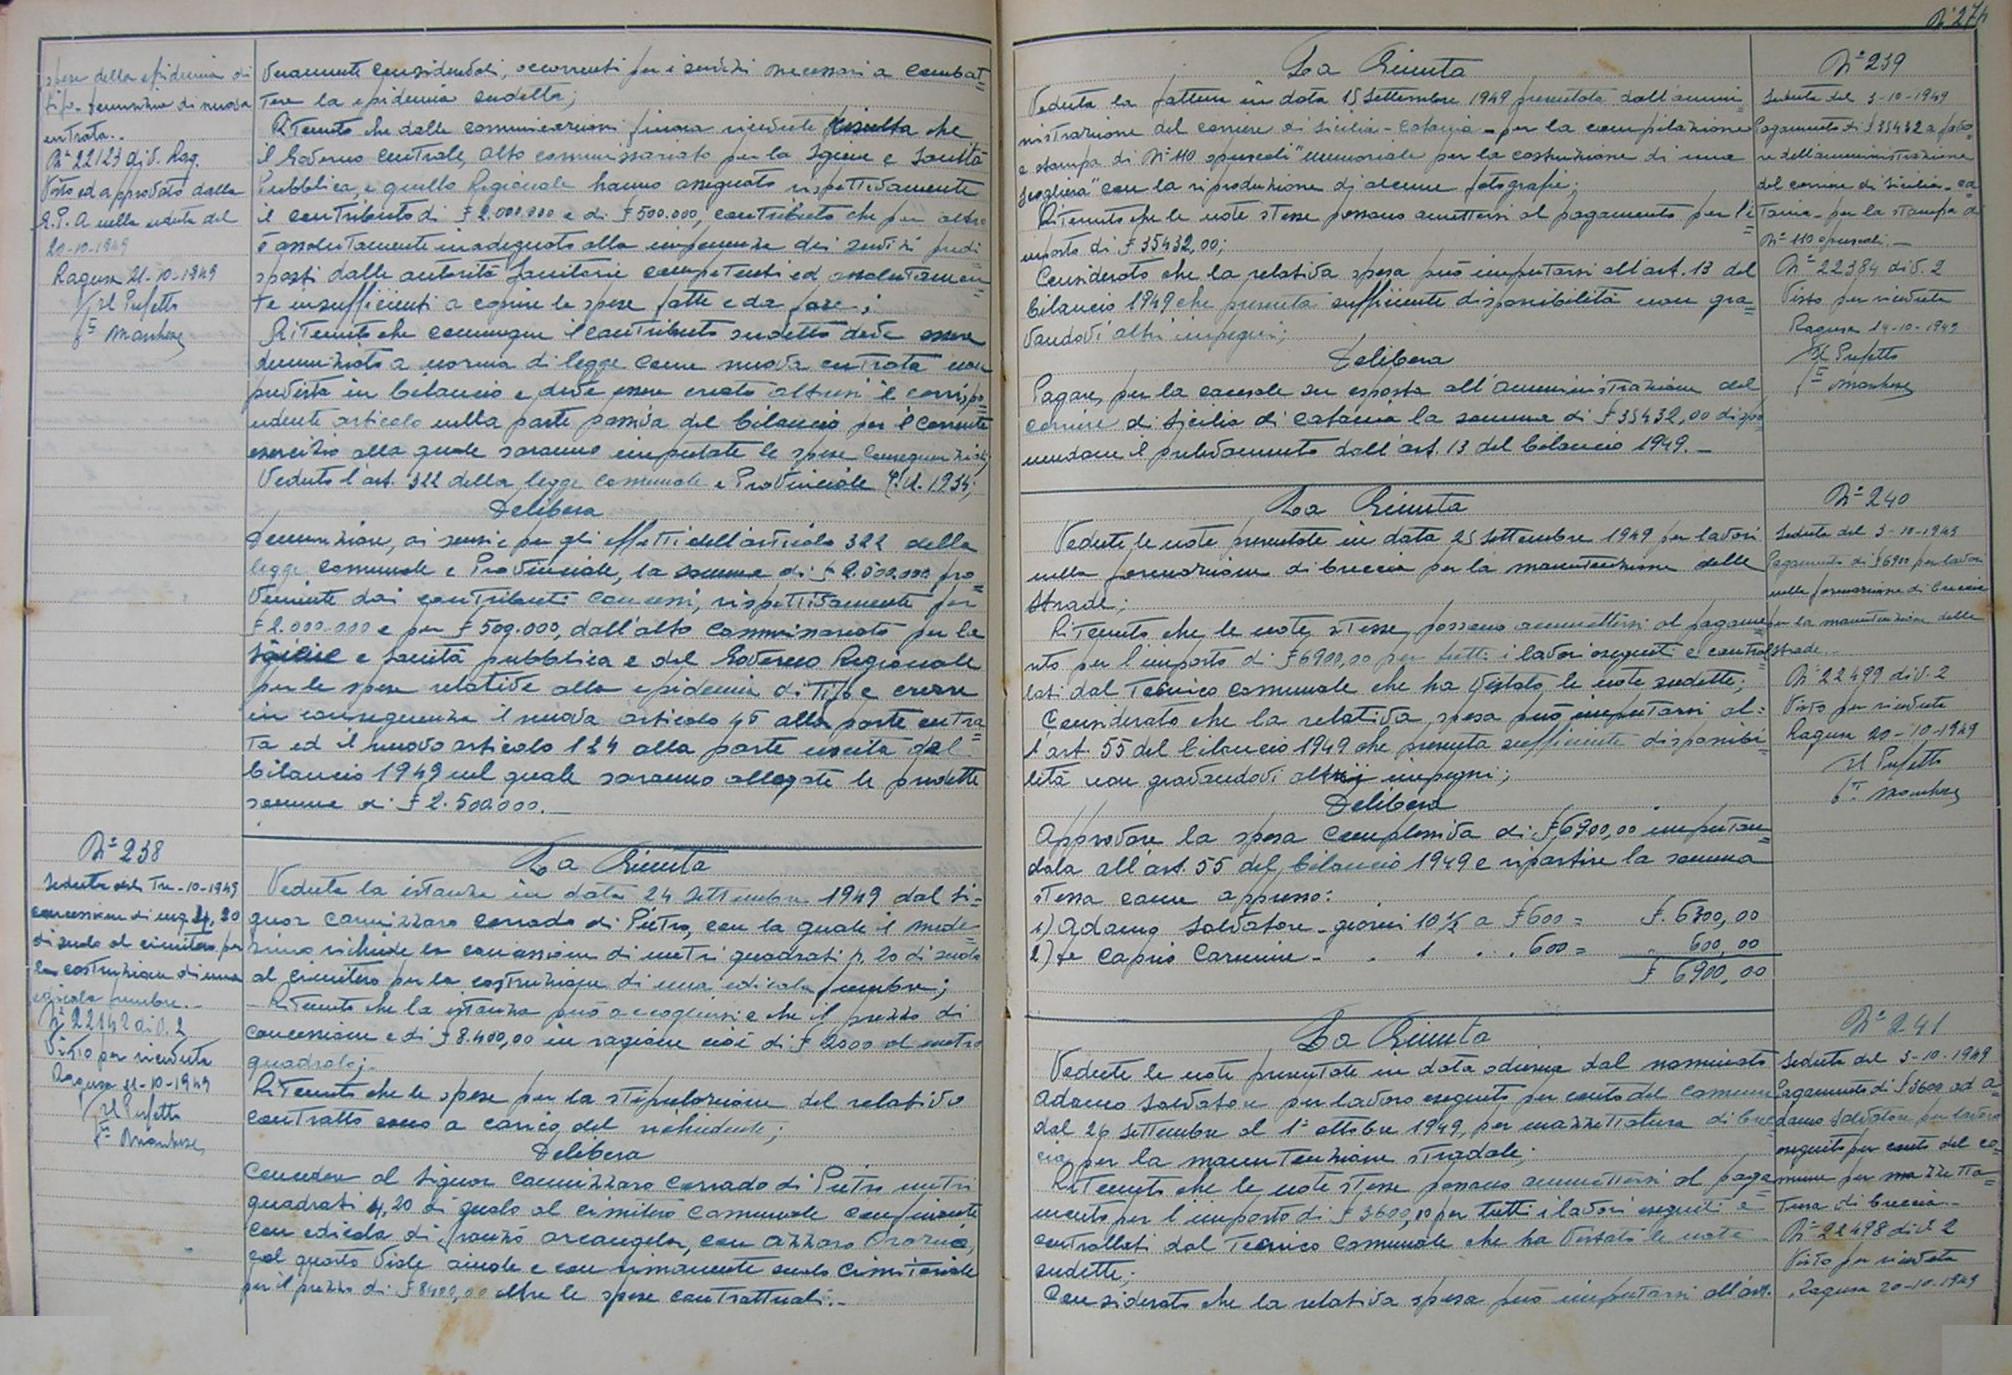 spese della epidemia di
tifo - denunzia di nuova
entrata.-
N° 22123 div. Rag.
Visto ed approvato dalla
G.P.A. nella seduta del
20-10-1949
Ragusa 21-10-1949
Il Prefetto
Fto
veramente considerevoli, occorrenti per i servizi necessari a combat=
tere la epidemia sudetta;
Ritenuto che dalle comunicazioni finora ricevute risulta che
il Governo Centrale, Alto commissariato per la Igiene e Sanità
Pubblica, e quello Regionale hanno assegnato rispettivamente
il contributo di £ 2.000.000 e di £ 500.000, contributo che per altro
è assolutamente inadeguato alla imponenza dei servizi predi
sposti dalle autorità Sanitarie competenti ed assolutamen=
te insufficienti a coprire le spese fatte e da fare;
Ritenuto che comunque il contributo sudetto deve essere
denunziato a norma di legge come nuova entrata non
prevista in bilancio e deve essere creato altresì il corrispo=
ndente articolo nella parte passiva del bilancio per il corrente
esercizio alla quale saranno imputate le spese conseguenziali;
Veduto l'art. 322 della legge Comunale e Provinciale 1934;
Delibera
Denunziare, ai sensi e per gli effetti dell'articolo 322 della
legge Comunale e Provinciale, la somma di £ 2.500.000 pro=
veniente dai contributi concessi, rispettivamente per
£ 2.000.000 e per £ 500.000, dall'alto Commissariato per la
Igiene e Sanità pubblica e del Governo Regionale
per le spese relative alla epidemia di tifo e creare
in conseguenza il nuovo articolo 45 alla parte entra=
ta ed il nuovo articolo 124 alla parte uscita del
bilancio 1949 nel quale saranno allogate le predette
somme di £ 2.500.000.-
N° 238
Seduta del Tre-10-1949
concessione di mq. 4,20
di suolo al cimitero per
la costruzione di una
edicola funebre.-
N° 22142 div. 2
Visto per ricevuta
Ragusa 11-10-1949
Il Prefetto
Fto
La Giunta
Veduta la istanza in data 24 Settembre 1949 del Si=
gnor Cannizzaro Corrado di Pietro, con la quale il mede=
simo richiede la concessione di metri quadrati 4,20 di suolo
al cimitero per la costruzione di una edicola funebre;
- Ritenuto che la istanza può accogliersi e che il prezzo di
concessione è di £ 8.400,00 in ragione cioè di £ 2000 al metro
quadrato;-
Ritenuto che le spese per la stipulazione del relativo
contratto sono a carico del richiedente;
Delibera
Concedere al Signor Cannizzaro Corrado di Pietro metri
quadrati 4,20 di suolo al cimitero Comunale confinante
con edicola di Arcangelo, con Azzaro Orazio,
col quarto viale aiuole e con rimanente suolo Cimiteriale
per il prezzo di £ 8400,00 oltre le spese contrattuali.-
N° 274
La Giunta
Veduta la fattura in data 15 Settembre 1949 presentata dall'ammi=
nistrazione del corriere di Sicilia - Catania - per la compilazione
e stampa di N° 110 opuscoli "memoriale per la costruzione di una
Scogliera" con la riproduzione di alcune fotografie;
Ritenuto che le note stesse possono ammettersi al pagamento per l'i=
mporto di £ 35432,00;
Considerato che la relativa spesa può imputarsi all'art. 13 del
bilancio 1949 che presenta sufficiente disponibilità non gra=
vandovi altri impegni;
Delibera
Pagare, per la causale su esposta all'amministrazione del
corriere di Sicilia di Catania la somma di £ 35432,00 dispo=
nendone il prelevamento dall'art. 13 del bilancio 1949.-
N° 239
Seduta del 3-10-1949
Pagamento di £ 35432 a favo=
re dell'amministrazione
del corriere di Sicilia - Ca=
tania - per la stampa di
N° 110 opuscoli.-
N° 22384 div. 2
Visto per ricevuta
Ragusa 14-10-1949
Il Prefetto
Fto
La Giunta
Vedute le note presentate in data 25 Settembre 1949 per lavori
nella formazione di breccia per la manutenzione delle
strade;
Ritenuto che le note stesse, possono ammettersi al pagame=
nto per l'importo di £ 6900,00 per tutti i lavori eseguiti e control
lati dal Tecnico Comunale che ha vistato le note sudette;
Considerato che la relativa spesa può imputarsi al=
l'art. 55 del bilancio 1949 che presenta sufficiente disponibi=
lità non gravandovi altri impegni;
Delibera
Approvare la spesa complessiva di £ 6900,00 imputan=
dola all'art. 55 del bilancio 1949 e ripartire la somma
stessa come appresso:
1) Adamo Salvatore - giorni 10 ½ a £ 600 = £. 6300,00
2) Lo Caprio Carmine - . 1 . . 600 = " 600,00
£ 6900,00
N° 240
Seduta del 3-10-1949
Pagamento di £ 6900 per lavori
nella formazione di breccia
per la manutenzione delle
strade.-
N° 22499 div. 2
Visto per ricevuta
Ragusa 20-10-1949
Il Prefetto
Fto
La Giunta
Vedute le note presentate in data odierna dal nominato
Adamo Salvatore per lavoro eseguito per conto del Comune
dal 26 Settembre al 1° ottobre 1949, per mazzettatura di brec=
cia, per la manutenzione stradale;
Ritenuto che le note stesse possono ammettersi al paga=
mento per l'importo di £ 3600,00 per tutti i lavori eseguiti e
controllati dal Tecnico Comunale che ha vistato le note
sudette;
Considerato che la relativa spesa può imputarsi all'art.
N° 241
Seduta del 3-10-1949
Pagamento di £ 3600 ad A=
damo Salvatore per lavoro
eseguito per conto del co=
mune per mazzetta=
tura di breccia.-
N° 22498 div. 2
Visto per ricevuta
Ragusa 20-10-1949